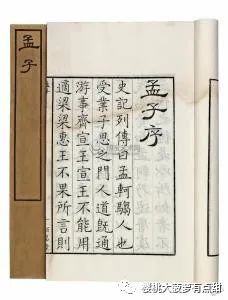 孟子序
史記列傳曰孟軻騶人也
受業子思之門人道既通
游事齊宣王宣王不能用
適梁梁惠王不果所言則
孟子
樱桃大菠萝有点甜